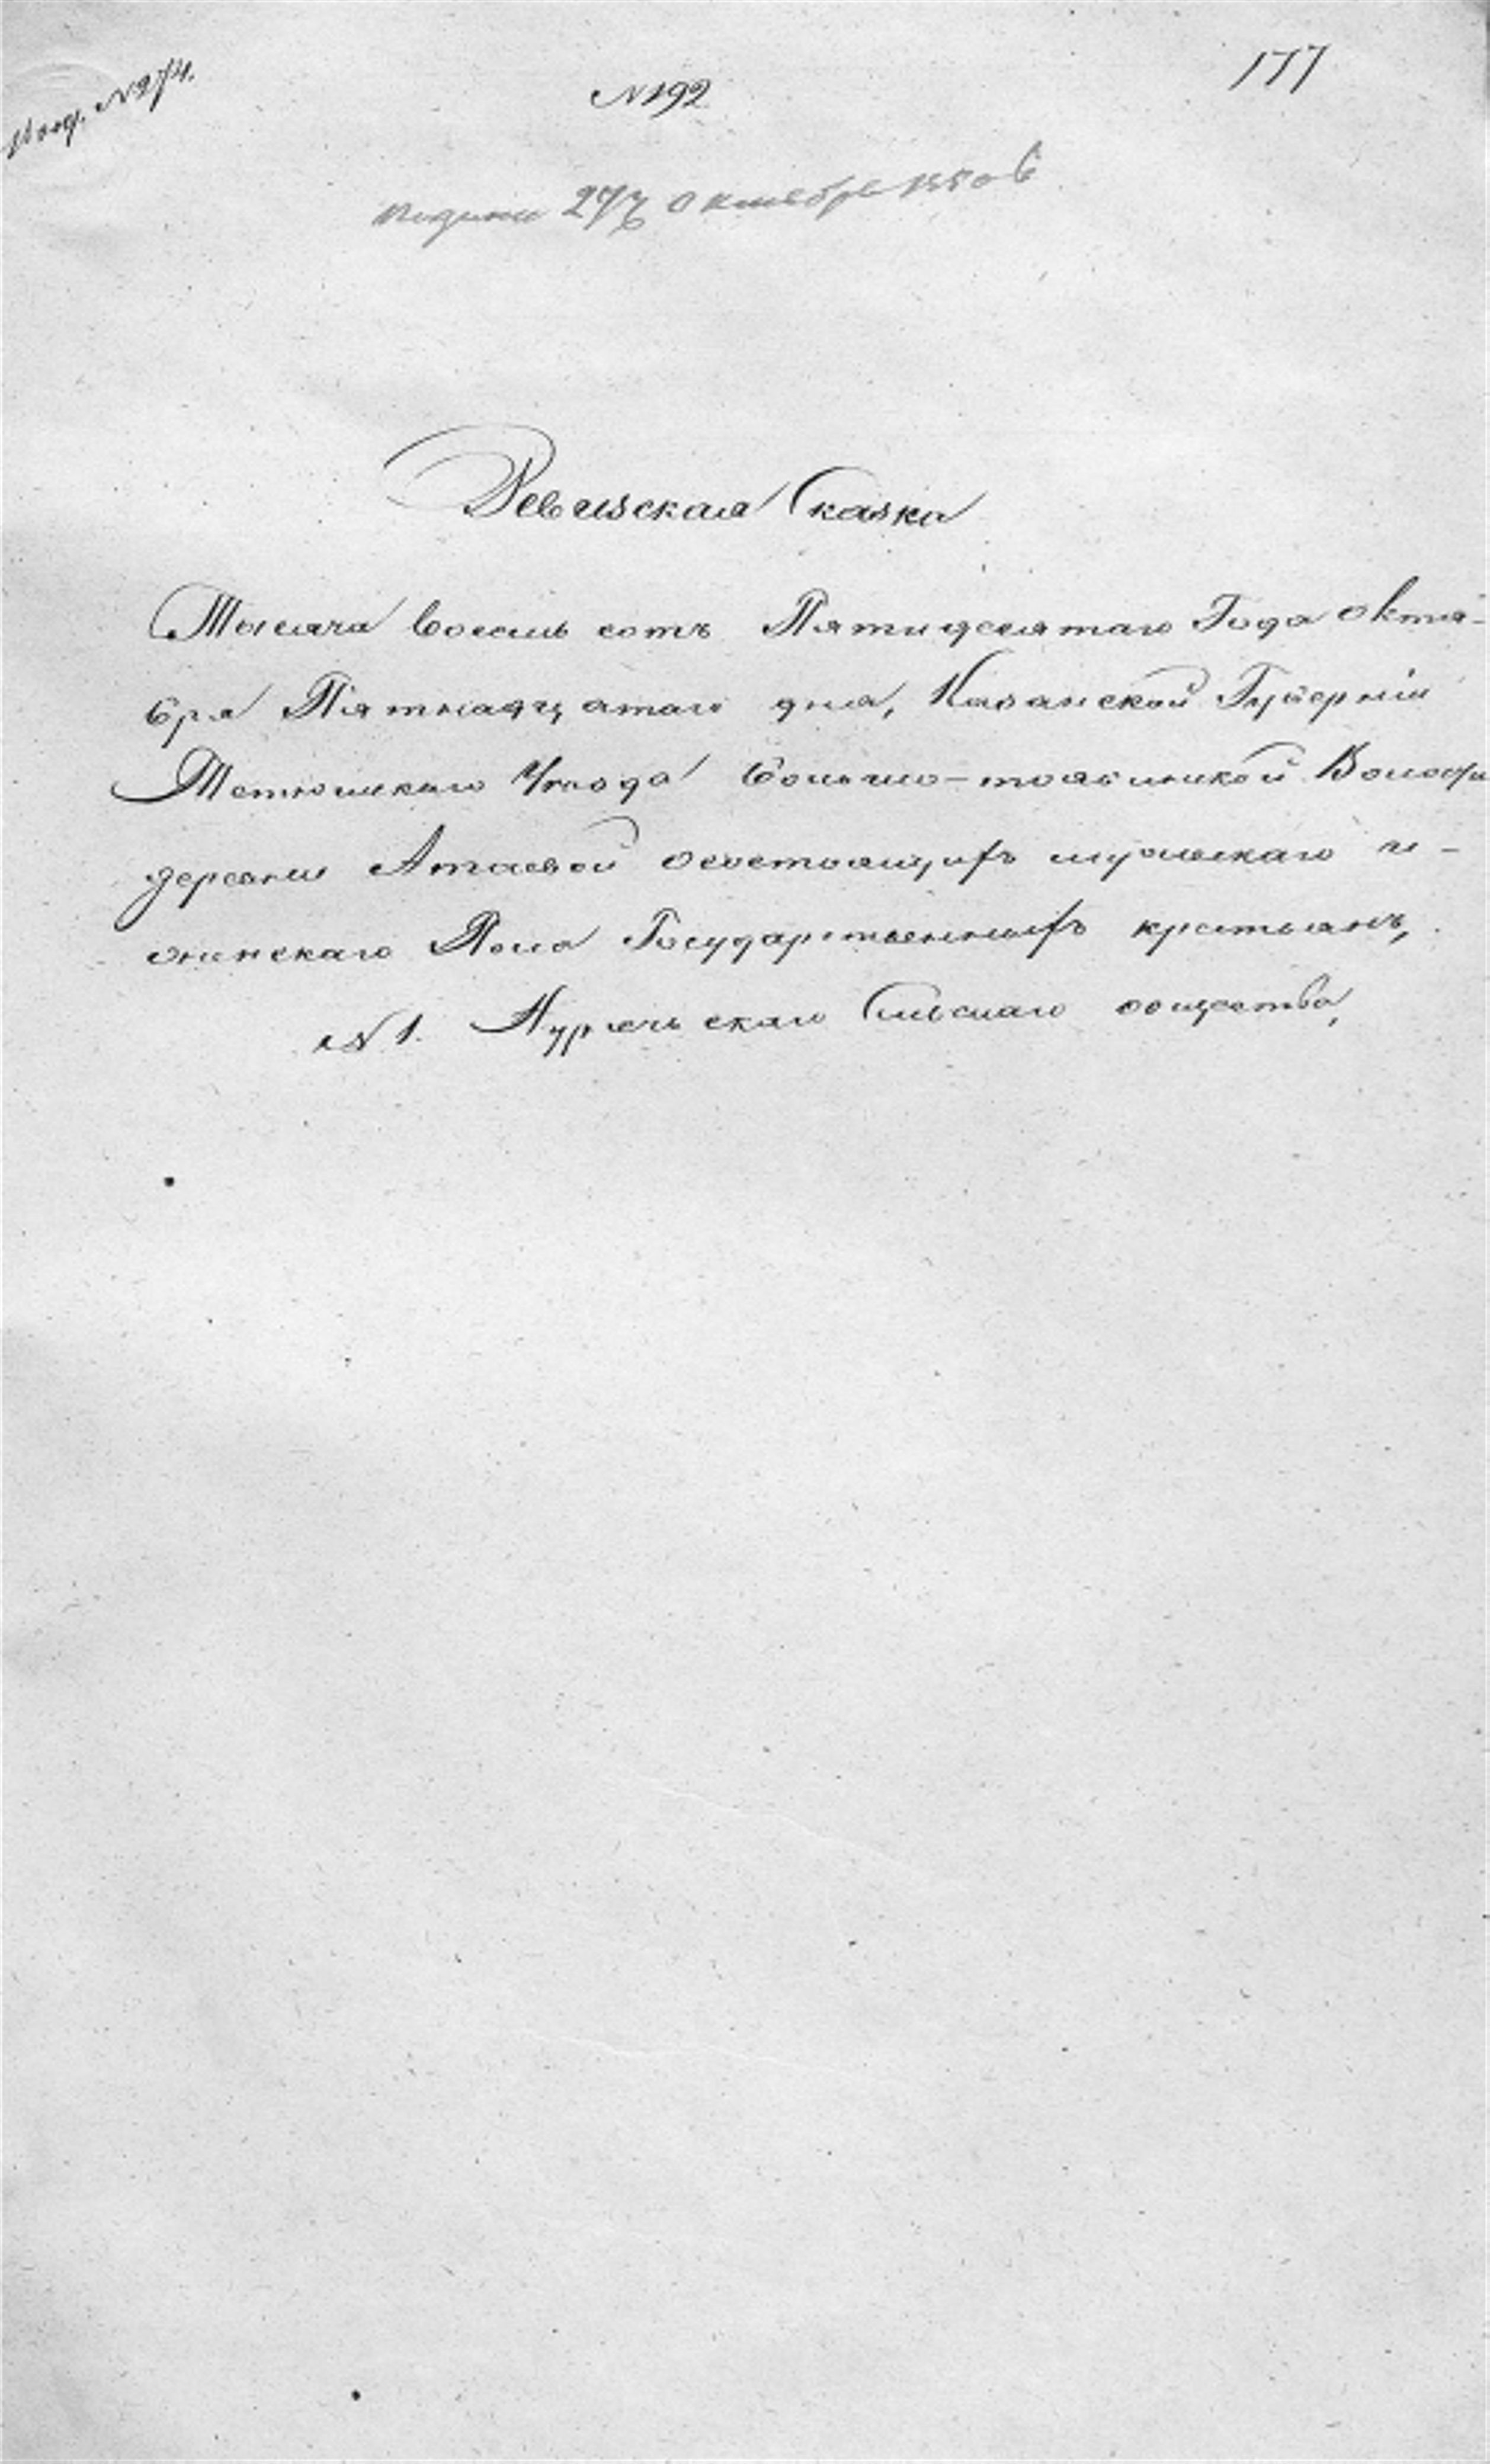 № 274.
№ 192
177
Подана 27 Октября 1850 г
Ревизская Сказка
Тысяча восемь сотъ Пятидесятаго Года Октя-
бря Пятнадцатаго дня, Казанской Губерніи
Тетюшскаго Уезда Больше-тоябинской Волости
деревни Атаевой осостоящихъ мужескаго и-
женскаго Пола Государственныхъ крестьянъ,
№ 1. Сельскаго общества,